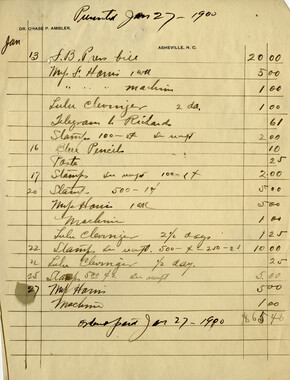 Presented Jan 27 - 1900
DR. CHASE P. AMBLER, ASHEVILLE, N. C.
Jan
13 F. B. Press bill 20 00
Mrs F. Harris 1 wk 5 00
" " " machine 1 00
Lula Clevinger 2 da. 1 00
Telegram to Richards 61
Stamps 100-2¢ 2 00
16 Pencils 10
Paste 25
17 Stamps 100-2 2 00
20 Stamps 500-1¢ 5 00
Mrs Harris 1 wk 5 00
Machine 1 00
Lula Clevinger 2½ days 1 25
22 Stamps 500-1-250-2¢ 10 00
Lula Clevinger ½ day. 25
25 Stamps 5 00
27 Mrs Harris 5 00
Machine 1 00
Ordered paid Jan 27 - 1900 $65 46